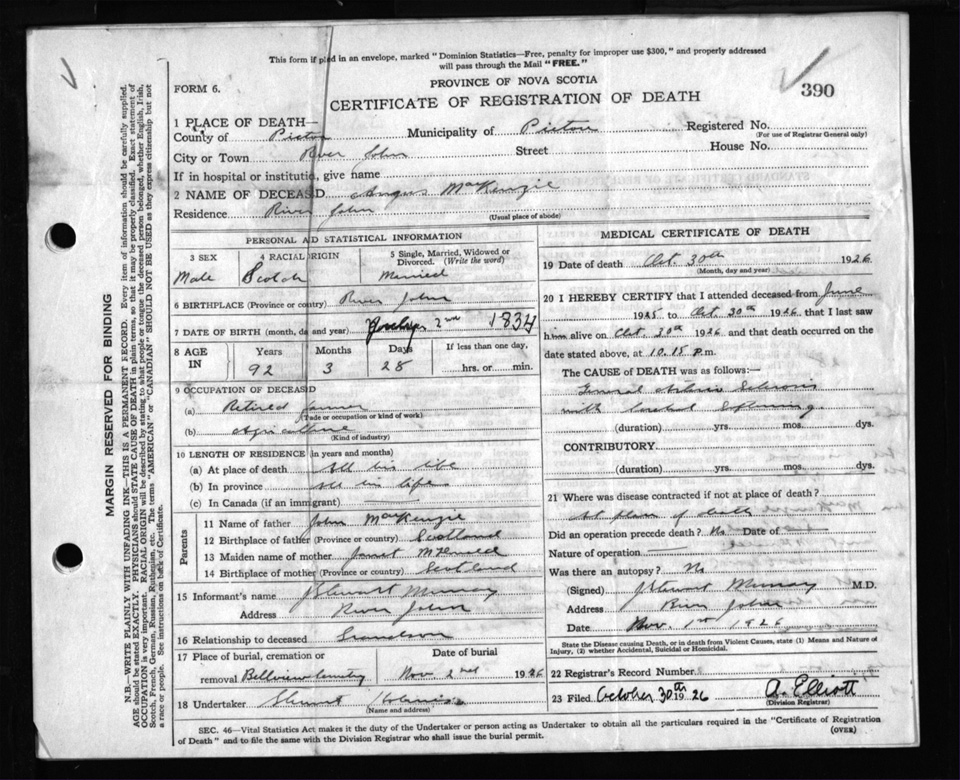 This form if plied in an envelope, marked "Dominion Statistics—Free, penalty for improper use $300," and properly addressed
will pass through the Mail "FREE."
FORM 6.
PROVINCE OF NOVA SCOTIA
CERTIFICATE OF REGISTRATION OF DEATH
390
1 PLACE OF DEATH—
County of Pictou Municipality of Pictou Registered No.
(For use of Registrar General only)
City or Town River John Street House No.
If in hospital or institution, give name
2 NAME OF DECEASED Angus MacKenzie
Residence River John
(Usual place of abode)
PERSONAL AND STATISTICAL INFORMATION
3 SEX 4 RACIAL ORIGIN 5 Single, Married, Widowed or Divorced. (Write the word)
Male Scotch Married
6 BIRTHPLACE (Province or country) River John
7 DATE OF BIRTH (month, day and year) 2nd 1834
8 AGE IN Years Months Days If less than one day,
92 3 28 hrs. or min.
9 OCCUPATION OF DECEASED
(a) Retired farmer
(Trade or occupation or kind of work)
(b) Agriculture
(Kind of industry)
10 LENGTH OF RESIDENCE (in years and months)
(a) At place of death All his life
(b) In province All his life
(c) In Canada (if an immigrant)
Parents
11 Name of father John MacKenzie
12 Birthplace of father (Province or country) Scotland
13 Maiden name of mother Janet
14 Birthplace of mother (Province or country) Scotland
15 Informant's name J Stewart Murray
Address River John
16 Relationship to deceased Grandson
17 Place of burial, cremation or Date of burial
removal Bellview Cemetery Nov 2nd 1926
18 Undertaker Stewart
(Name and address)
MEDICAL CERTIFICATE OF DEATH
19 Date of death Oct 30th 1926
(Month, day and year)
20 I HEREBY CERTIFY that I attended deceased from June
1925 to Oct 30th 1926, that I last saw
him alive on Oct 30th 1926 and that death occurred on
date stated above, at 10.15 p.m.
The CAUSE of DEATH was as follows:—
General Arterio Sclerosis
with
(duration) yrs. mos. dys.
CONTRIBUTORY.
(duration) yrs. mos. dys.
21 Where was disease contracted if not at place of death?
At place of death
Did an operation precede death? No Date of
Nature of operation
Was there an autopsy? No
(Signed) J Stewart Murray M.D.
Address River John
Date Nov. 1st 1926
State the Disease causing Death, or in death from Violent Causes, state (1) Means and Nature of
Injury, (2) whether Accidental, Suicidal or Homicidal.
22 Registrar's Record Number
23 Filed October 30th 1926 A. Elliott
(Division Registrar)
SEC. 46—Vital Statistics Act makes it the duty of the Undertaker or person acting as Undertaker to obtain all the particulars required in the "Certificate of Registration
of Death" and to file the same with the Division Registrar who shall issue the burial permit.
(OVER)
MARGIN RESERVED FOR BINDING
N.B.—WRITE PLAINLY WITH UNFADING INK—THIS IS A PERMANENT RECORD. Every item of information should be carefully supplied.
AGE should be stated EXACTLY. PHYSICIANS should STATE CAUSE OF DEATH in plain terms, so that it may be properly classified. Exact statement of
OCCUPATION is very important. RACIAL ORIGIN will be described by stating to what people or tongue the deceased person belonged, whether English, Irish,
Scotch, French, German, Russian, Ruthenian, etc. The terms "AMERICAN" or "CANADIAN" SHOULD NOT BE USED as they express citizenship but not
a race or people. See instructions on back of Certificate.